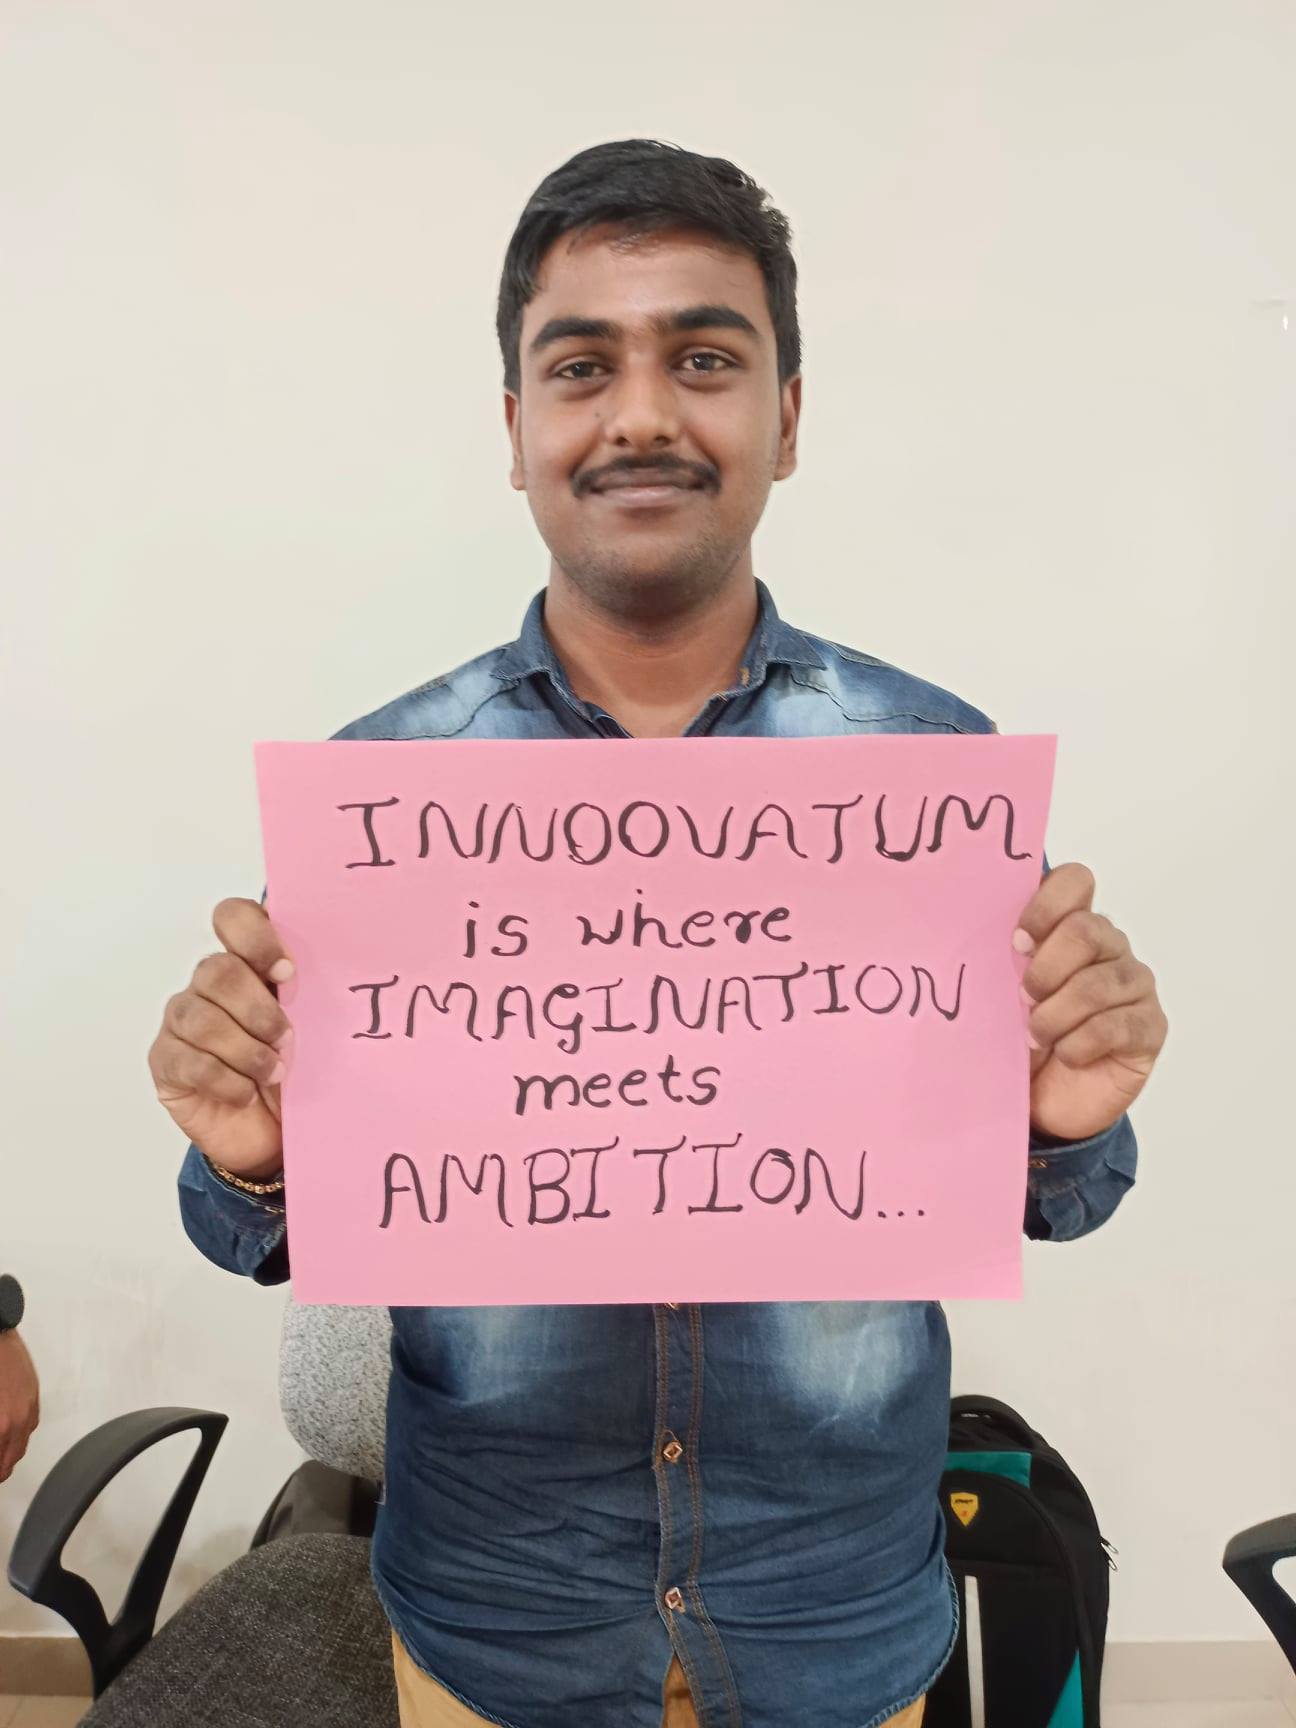 INNOOVATUM
is where
IMAGINATION
meets
AMBITION...